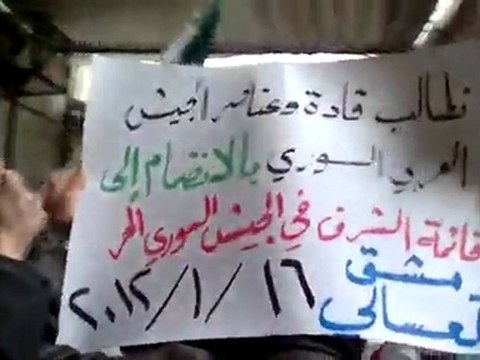 نطالب قادة وعناصر الجيش
العربي السوري بالانضمام إلى
قائمة الشرف في الجيش السوري الحر
دمشق
العسالي
١٦ / ١ / ٢٠١٢